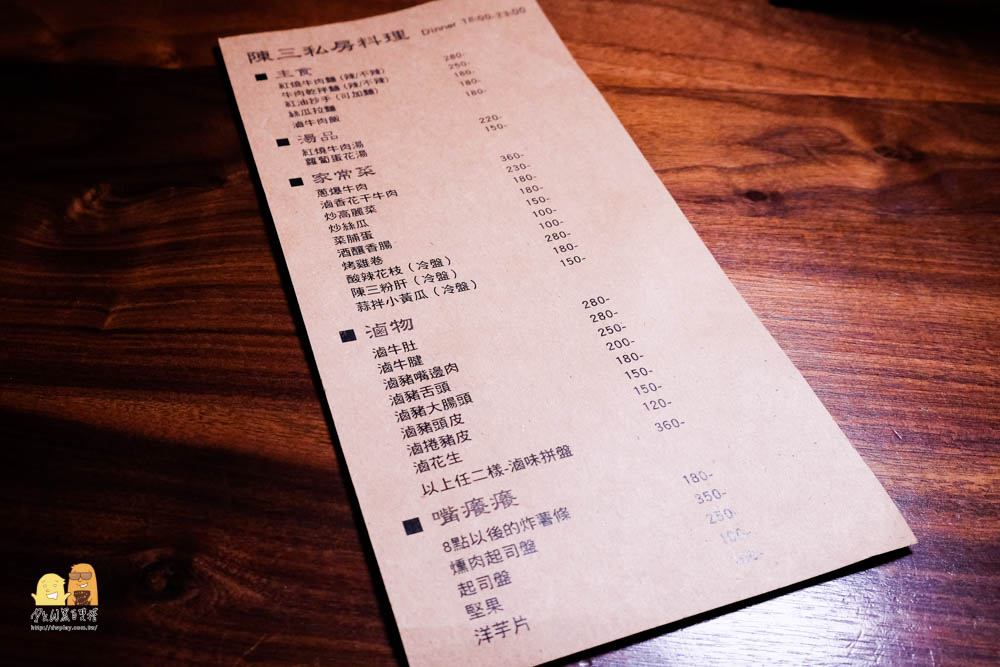 陳三私房料理 Dinner 18:00-23:00
■ 主食
紅燒牛肉麵（辣/不辣） 280-
牛肉乾拌麵（辣/不辣） 250-
紅油抄手（可加麵） 180-
絲瓜拉麵 180-
滷牛肉飯 180-
■ 湯品
紅燒牛肉湯 220-
蘿蔔蛋花湯 150-
■ 家常菜
蔥爆牛肉 360-
滷香花干牛肉 230-
炒高麗菜 180-
炒絲瓜 180-
菜脯蛋 150-
酒釀香腸 100-
烤雞卷 100-
酸辣花枝（冷盤） 280-
陳三粉肝（冷盤） 180-
蒜拌小黃瓜（冷盤） 150-
■ 滷物
滷牛肚 280-
滷牛腱 280-
滷豬嘴邊肉 250-
滷豬舌頭 200-
滷豬大腸頭 180-
滷豬頭皮 150-
滷捲豬皮 150-
滷花生 120-
以上任二樣-滷味拼盤 360-
■ 嘴癢癢
8點以後的炸薯條 180-
燻肉起司盤 350-
起司盤 250-
堅果 100-
洋芋片
http://dwplay.com.tw/